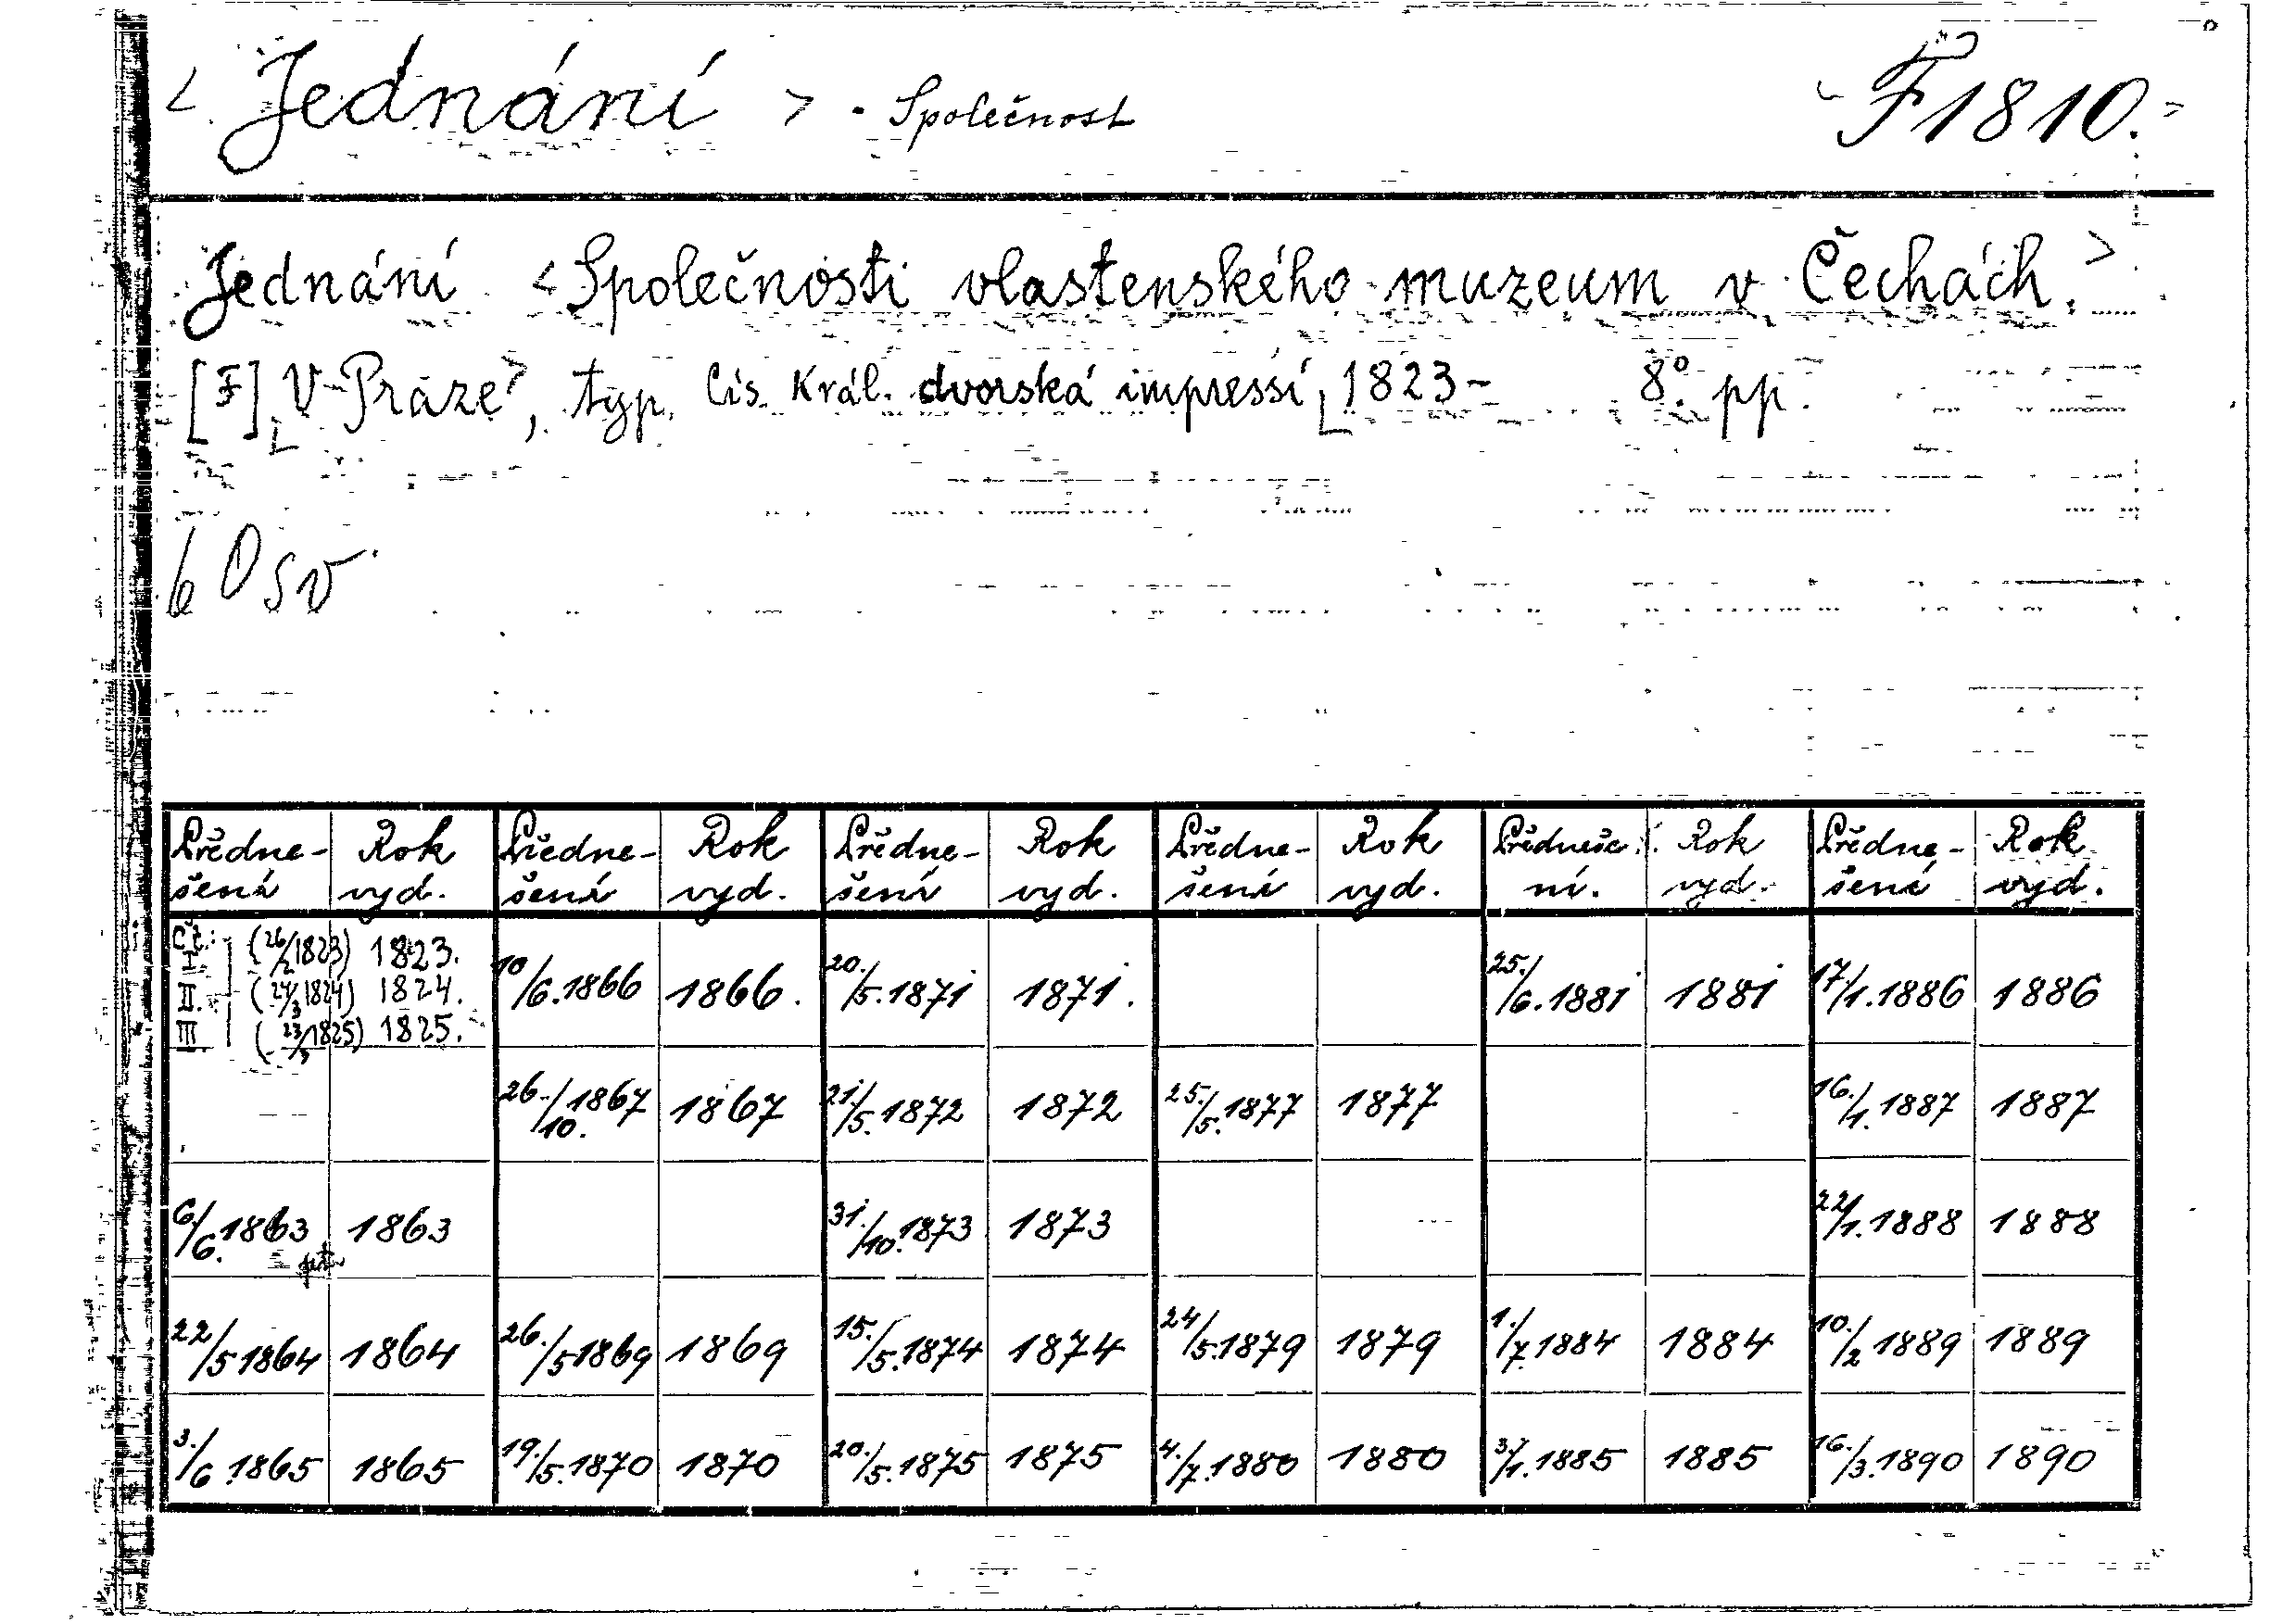 < Jednání > · Společnost F 1810.
Jednání <Společnosti vlastenského muzeum v Čechách.>
[F] V Praze, typ. Cís. Král. dvorská impressí, 1823– 8° pp.
Předne- Rok Předne- Rok Předne- Rok Předne- Rok Přednše- Rok Předne- Rok
šení vyd. šení vyd. šení vyd. šení vyd. ní. vyd. šení vyd.
Čt.:
I. (26/2 1823) 1823.
II. (24/3 1824) 1824.
III. (23/3 1825) 1825.
10/6. 1866 1866. 20./5. 1871 1871. 25./6. 1881 1881 17/1. 1886 1886
26./10. 1867 1867 21./5. 1872 1872 25./5. 1877 1877 16./1. 1887 1887
6/6. 1863 1863 31./10. 1873 1873 22/1. 1888 1888
22/5 1864 1864 26./5 1869 1869 15./5. 1874 1874 24/5. 1879 1879 1./7. 1884 1884 10./2 1889 1889
3./6 1865 1865 19./5. 1870 1870 20./5. 1875 1875 4./7. 1880 1880 1885 1885 16./3. 1890 1890